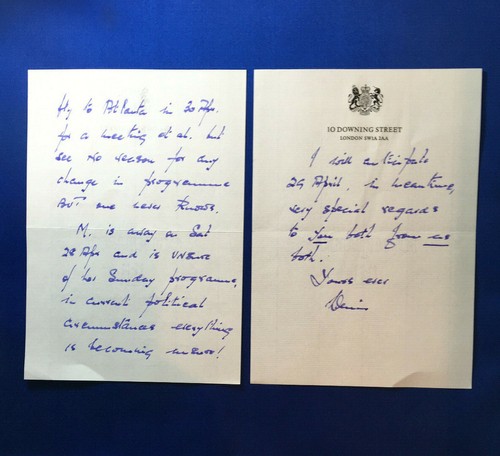 fly to Atlanta in 30 Apr.
for a meeting et al. but
see no reason for any
change in programme
BUT one never knows.
M. is away on Sat
28 Apr and is unsure
of her Sunday programme,
in current political
circumstances everything
is becoming unsure!
10 DOWNING STREET
LONDON SW1A 2AA
I will anticipate
29 April. in meantime,
very special regards
to you both from us
both.
Yours ever
Denis